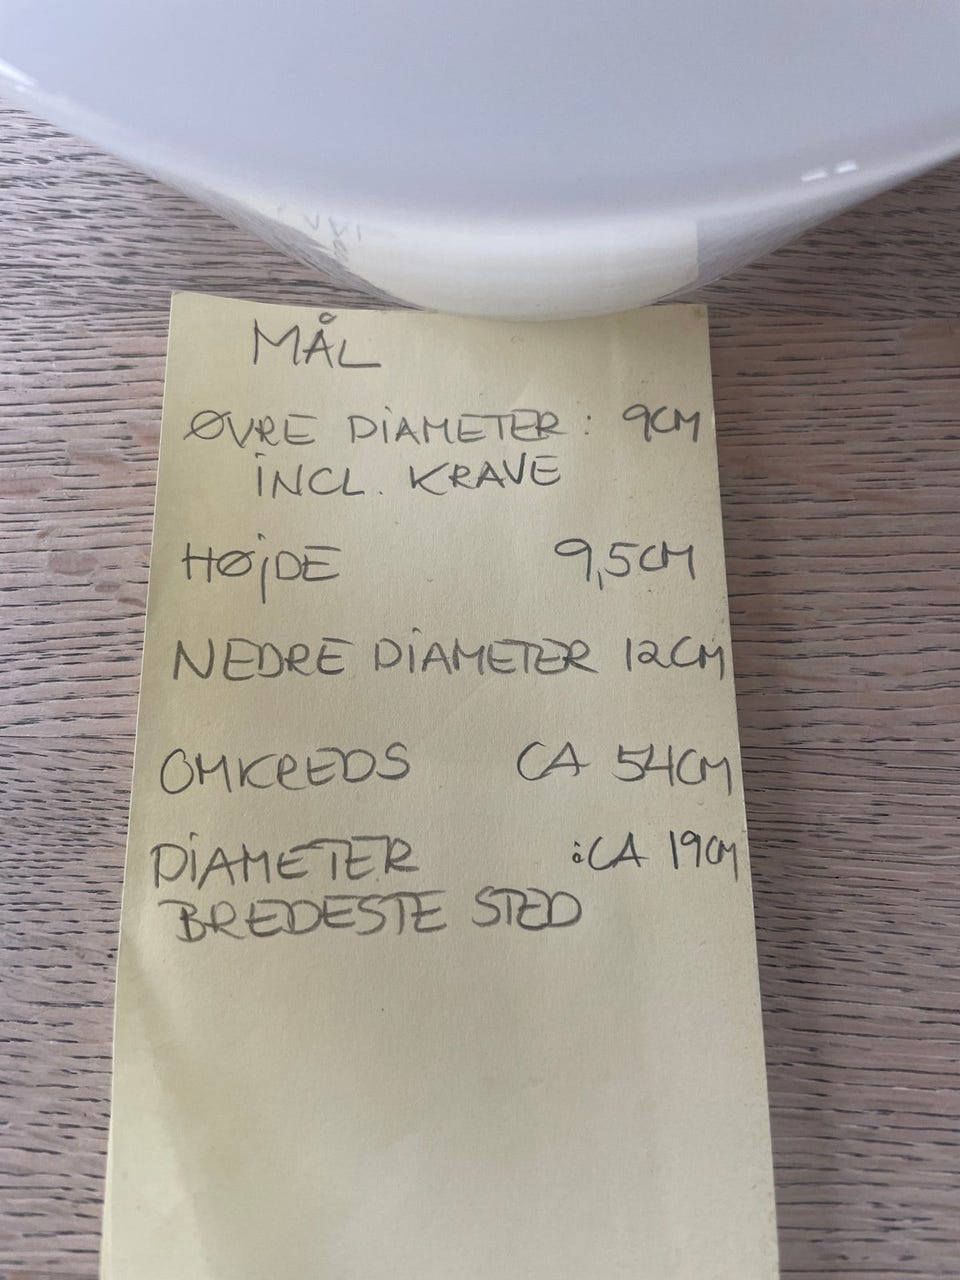 MÅL
ØVRE DIAMETER: 9CM
INCL. KRAVE
HØJDE 9,5CM
NEDRE DIAMETER 12CM
OMKREDS CA 54CM
DIAMETER :CA 19CM
BREDESTE STED